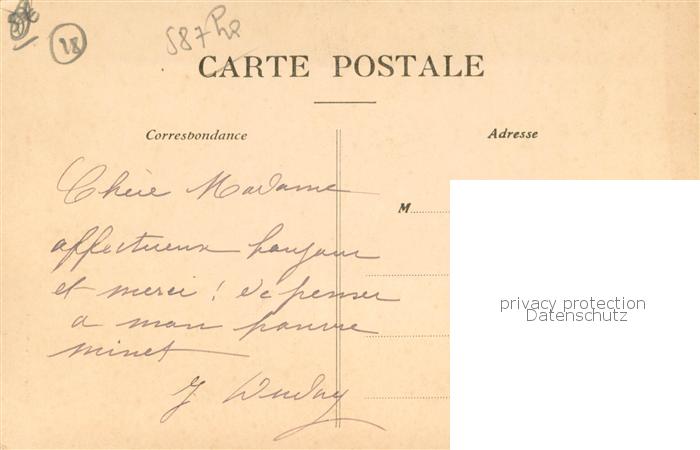 18
587
CARTE POSTALE
Correspondance
Adresse
Chère Madame
M
affectueux bonjour
et merci ! de penser
privacy protection
Datenschutz
a mon pauvre
minet
J